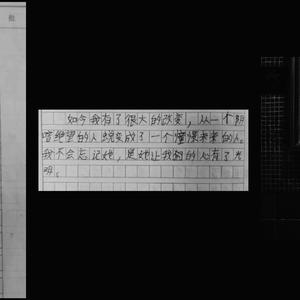 如今我有了很大的改变，从一个阴
暗绝望的人蜕变成了一个憧憬未来的人。
我不会忘记她，是她让我的心有了光
明。